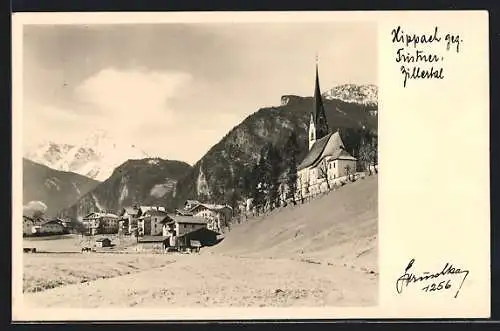 Hippach geg.
Tristner.
Zillertal
Hruschka
1256